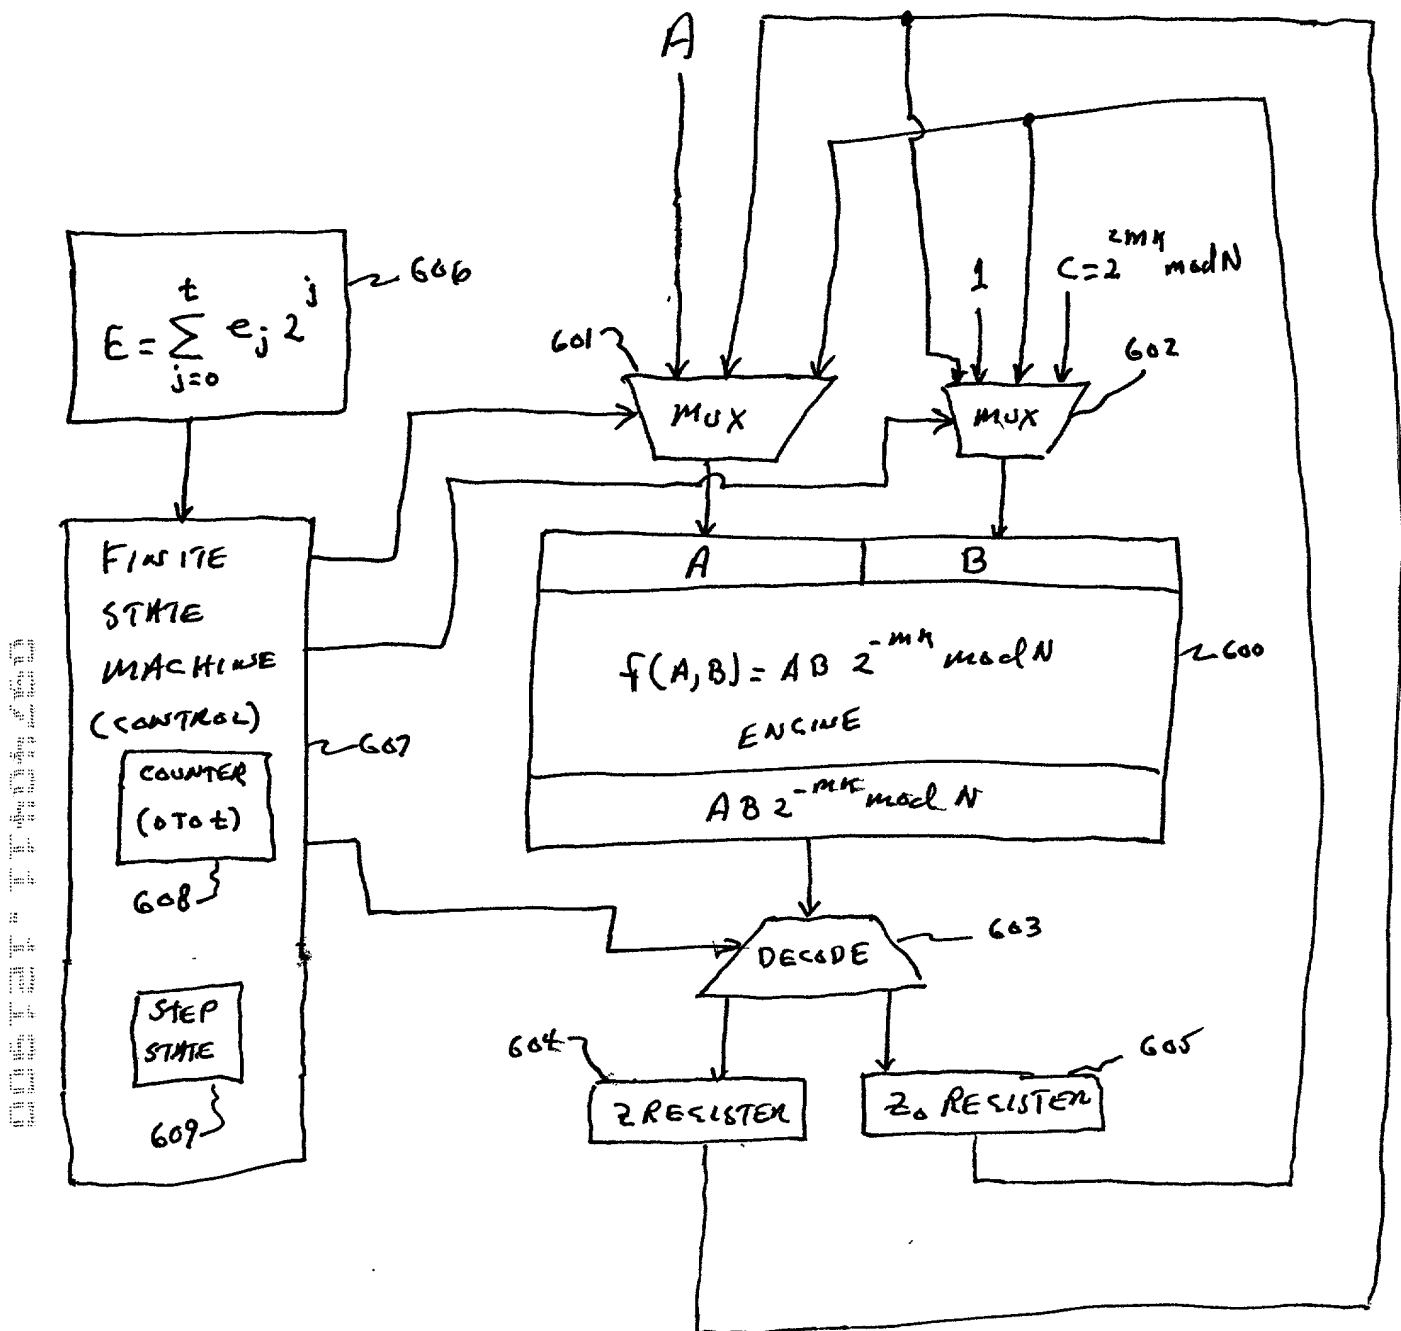 A
606
E = \sum_{j=0}^{t} e_j 2^j
1
C = 2^{2mk} mod N
601
602
MUX
MUX
FINITE
STATE
MACHINE
(CONTROL)
607
COUNTER
(0 TO t)
608
STEP
STATE
609
A
B
f(A,B) = A B 2^{-mk} mod N
ENGINE
600
A B 2^{-mk} mod N
DECODE
603
604
Z REGISTER
605
Z_0 REGISTER